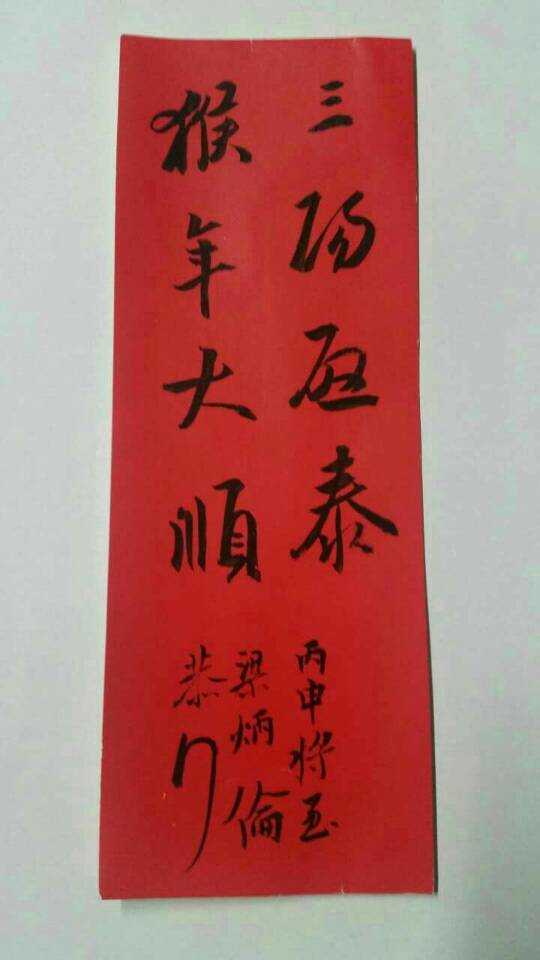 三陽啟泰
猴年大順
丙申將至
梁炳倫
恭